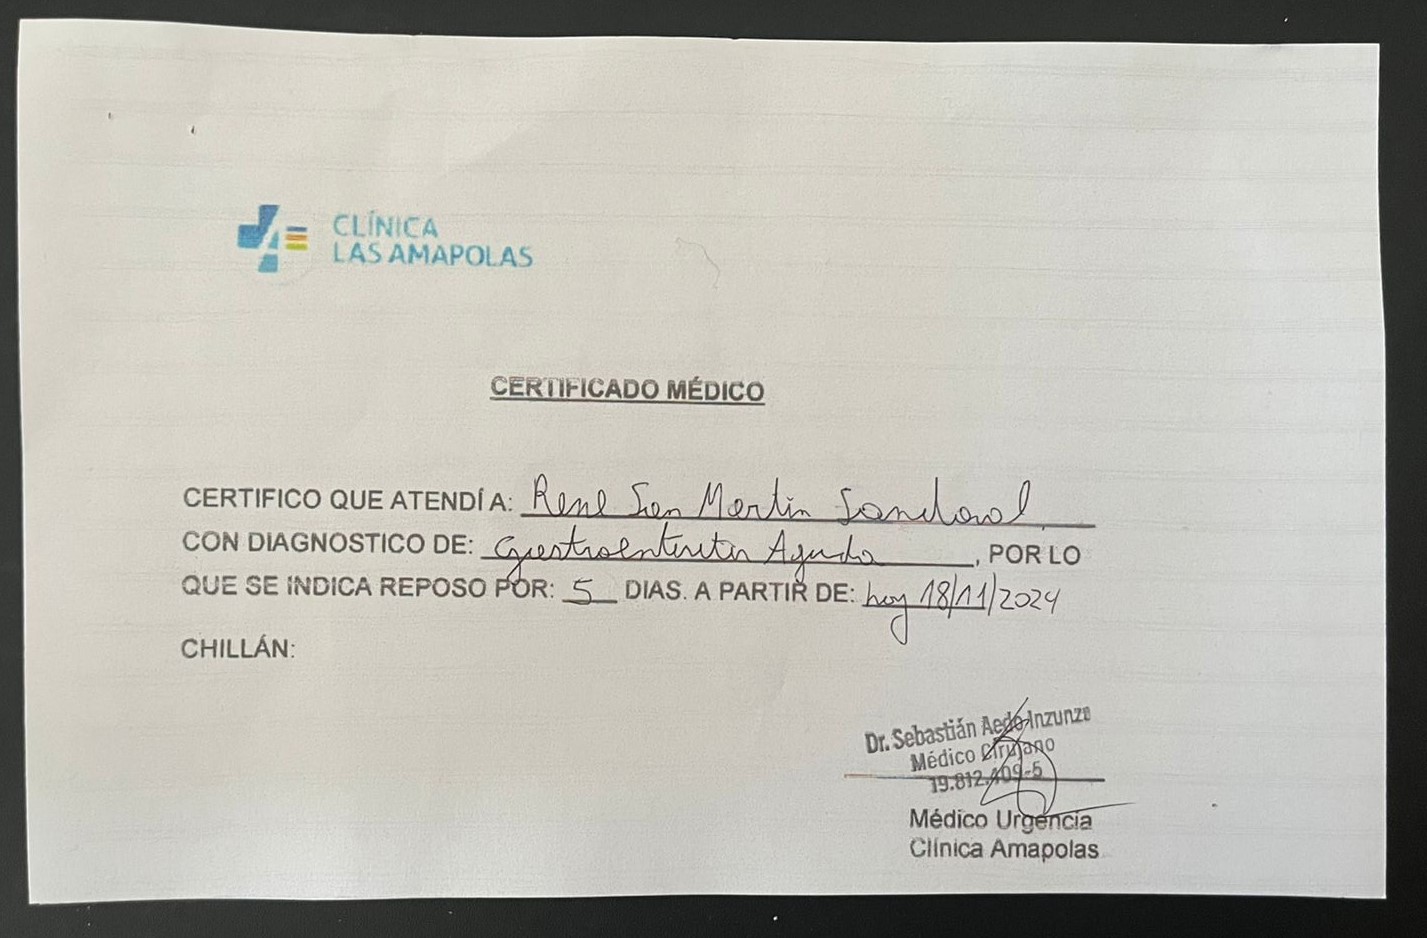 CLÍNICA
LAS AMAPOLAS
CERTIFICADO MÉDICO
CERTIFICO QUE ATENDÍ A: Rene San Martin Sandoval
CON DIAGNOSTICO DE: Gastroenteritis Aguda, POR LO
QUE SE INDICA REPOSO POR: 5 DIAS. A PARTIR DE: hoy 18/11/2024
CHILLÁN:
Dr. Sebastián Aedo Inzunza
Médico Cirujano
19.812.409-5
Médico Urgencia
Clínica Amapolas